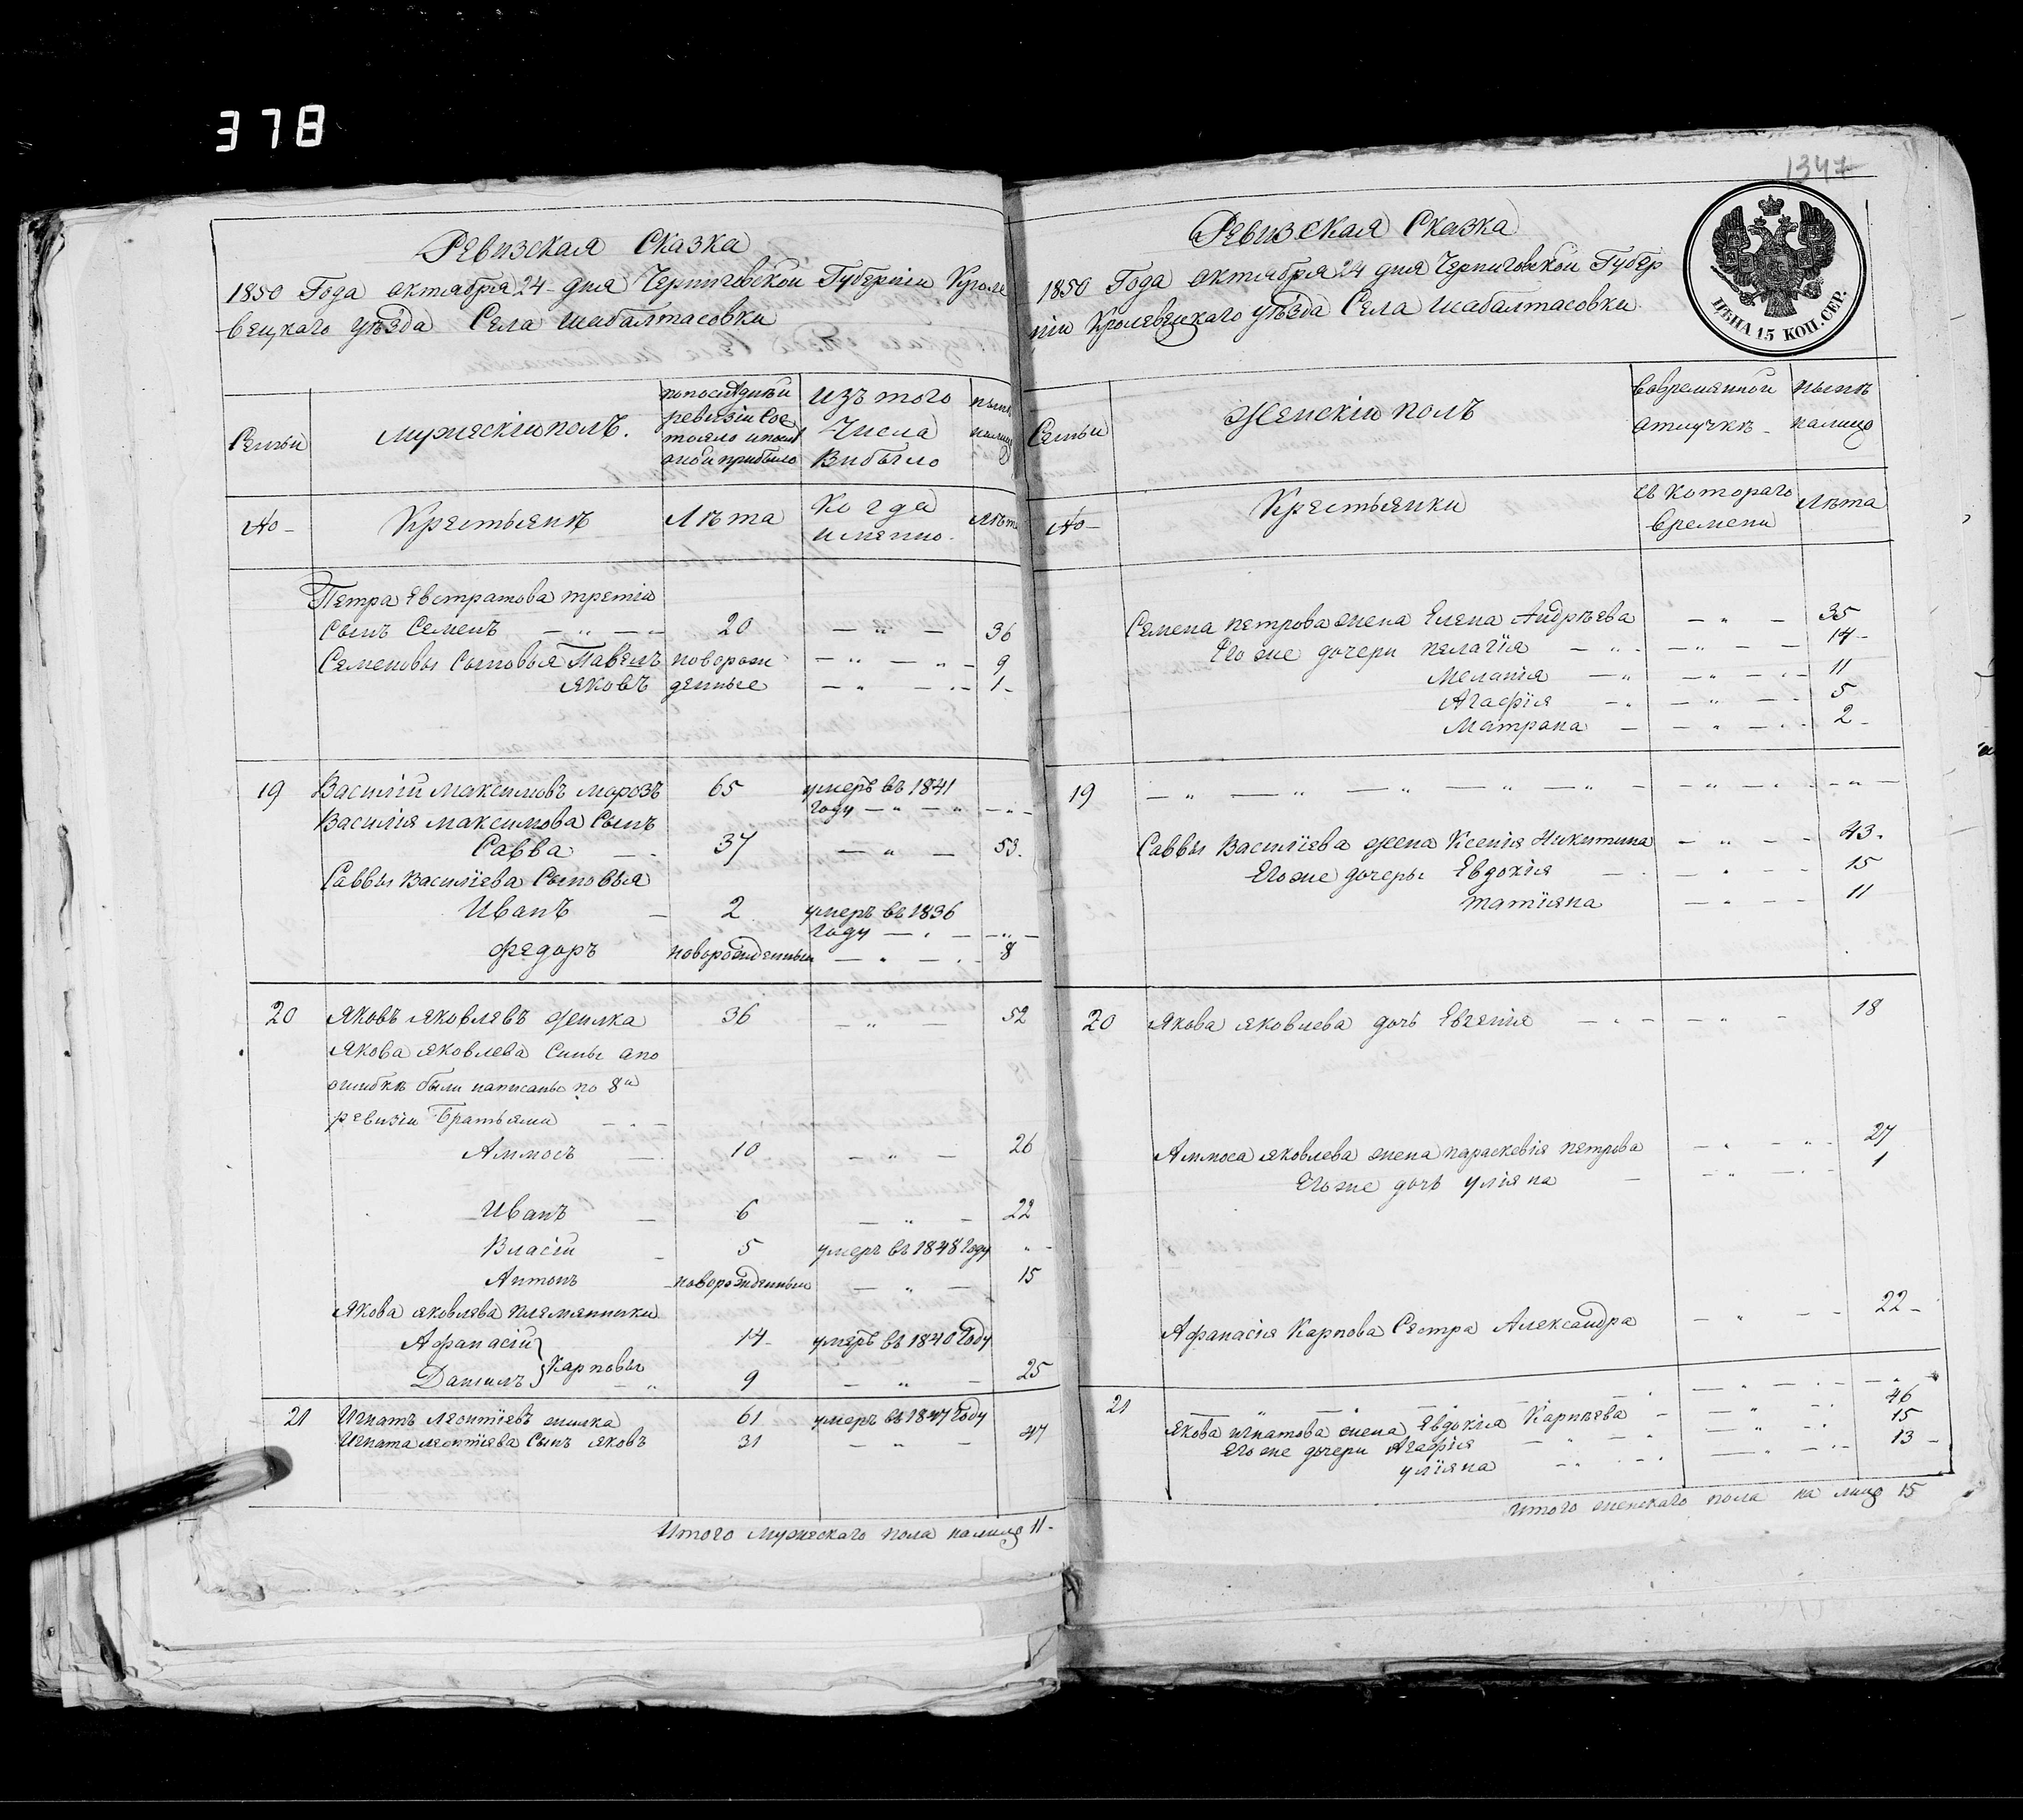 378
1347
Ревизская Сказка
1850 Года октября 24 дня Черниговской Губернiи Кроле
вецкаго уѣзда Села Шабалтасовки
Семьи
мужескiй полъ.
по последней
ревизiи сос
тояло и посл
оной прибыло
Изъ того
Числа
Выбыло
нынѣ
налицо
№
Крестьянѣ
Лѣта
Когда
именно.
Лѣта
Петра Евстратова третiй
Сынъ Семенъ — „ — 20 — „ — 36
Семеновы Сыновья Павелъ новорож — „ — „ — 9
яковъ денные — „ — „ — 1
19 Василiй Максимовъ морозъ 65 умеръ въ 1841
году — „ — „ — „ —
Василiя максимова Сынъ
Савва — 37 — „ — 53.
Саввы Василiева Сыновья
Иванъ — 2 умеръ въ 1836
году — „ — „ —
Федоръ новорожденный — „ — 8
20 Яковъ яковлевъ жилка 36 — „ — 52
Якова яковлева Сины а по
ошибкѣ были написаны по 8й
ревизiи Братьями — „ —
Аммосъ — 10 — „ — 26
Иванъ — 6 — „ — 22
Власiй — 5 умеръ въ 1848 Году „ —
Антонъ новорожденный — „ — 15
Якова яковлева племянники
Афанасiй 14 умеръ въ 1840 Году
Данилъ } Карповы — „ 9 — „ — 25
21 Игнатъ Леонтiевъ жилка 61 умеръ въ 1847 Году
Игната леонтiева Сынъ яковъ 31 — „ — 47
Итого Мужескаго пола налицо 11
Ревизская Сказка
1850 Года октября 24 дня Черниговской Губер
нiи Кролевецкаго уѣзда Села Шабалтасовки
ЦѢНА 15 КОП. СЕР.
Семьи
Женскiй полъ
Вовременной
отлучкѣ
нынѣ
налицо
№
Крестьянки
съ котораго
времени
Лѣта
Семена петрова жена Елена Андрѣева — „ — 35
Его же дочери пелагiя — „ — „ — 14
Меланiя — „ — „ — 11
Агафiя — „ — „ — 5
Матрона — „ — 2
19 — „ — „ — „ — „ — „ —
Саввы Василiева жена Ксенiя Никитина — „ — 43.
Его же дочеры Евдокiя — „ — 15
татiяна — „ — 11
20 Якова яковлева дочь Евгенiя — „ — „ — 18
Аммоса яковлева жена параскевiя петрова — „ — „ — 27
Его же дочь улiяна — „ — 1
Афанасiя Карпова Сестра Александра — „ — 22
21 — „ — „ — „ — „ —
Якова игнатова жена Евдокiя Карпѣева — „ — 46
Его же дочери Агафiя — „ — 15
улiяна — „ — 13
Итого женскаго пола на лицо 15